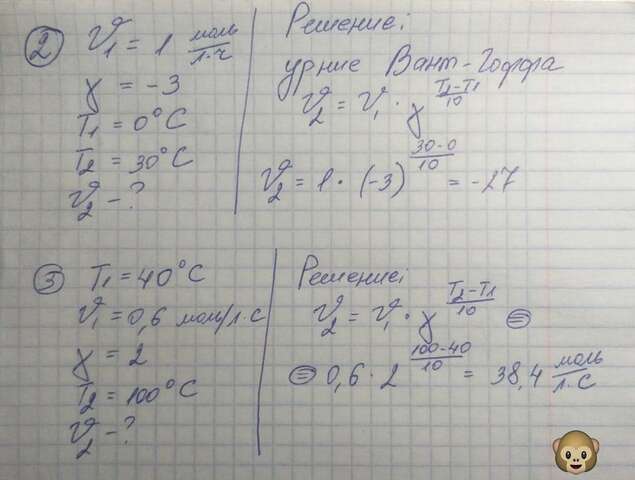 ② V₁ = 1 моль/л·ч
γ = -3
T₁ = 0°C
T₂ = 30°C
V₂ - ?
Решение:
урние Вант-Гоффа
V₂ = V₁ · γ^((T₂-T₁)/10)
V₂ = 1 · (-3)^((30-0)/10) = -27
③ T₁ = 40°C
V₁ = 0,6 моль/л·с
γ = 2
T₂ = 100°C
V₂ - ?
Решение:
V₂ = V₁ · γ^((T₂-T₁)/10) ⊜
⊜ 0,6 · 2^((100-40)/10) = 38,4 моль/л·с